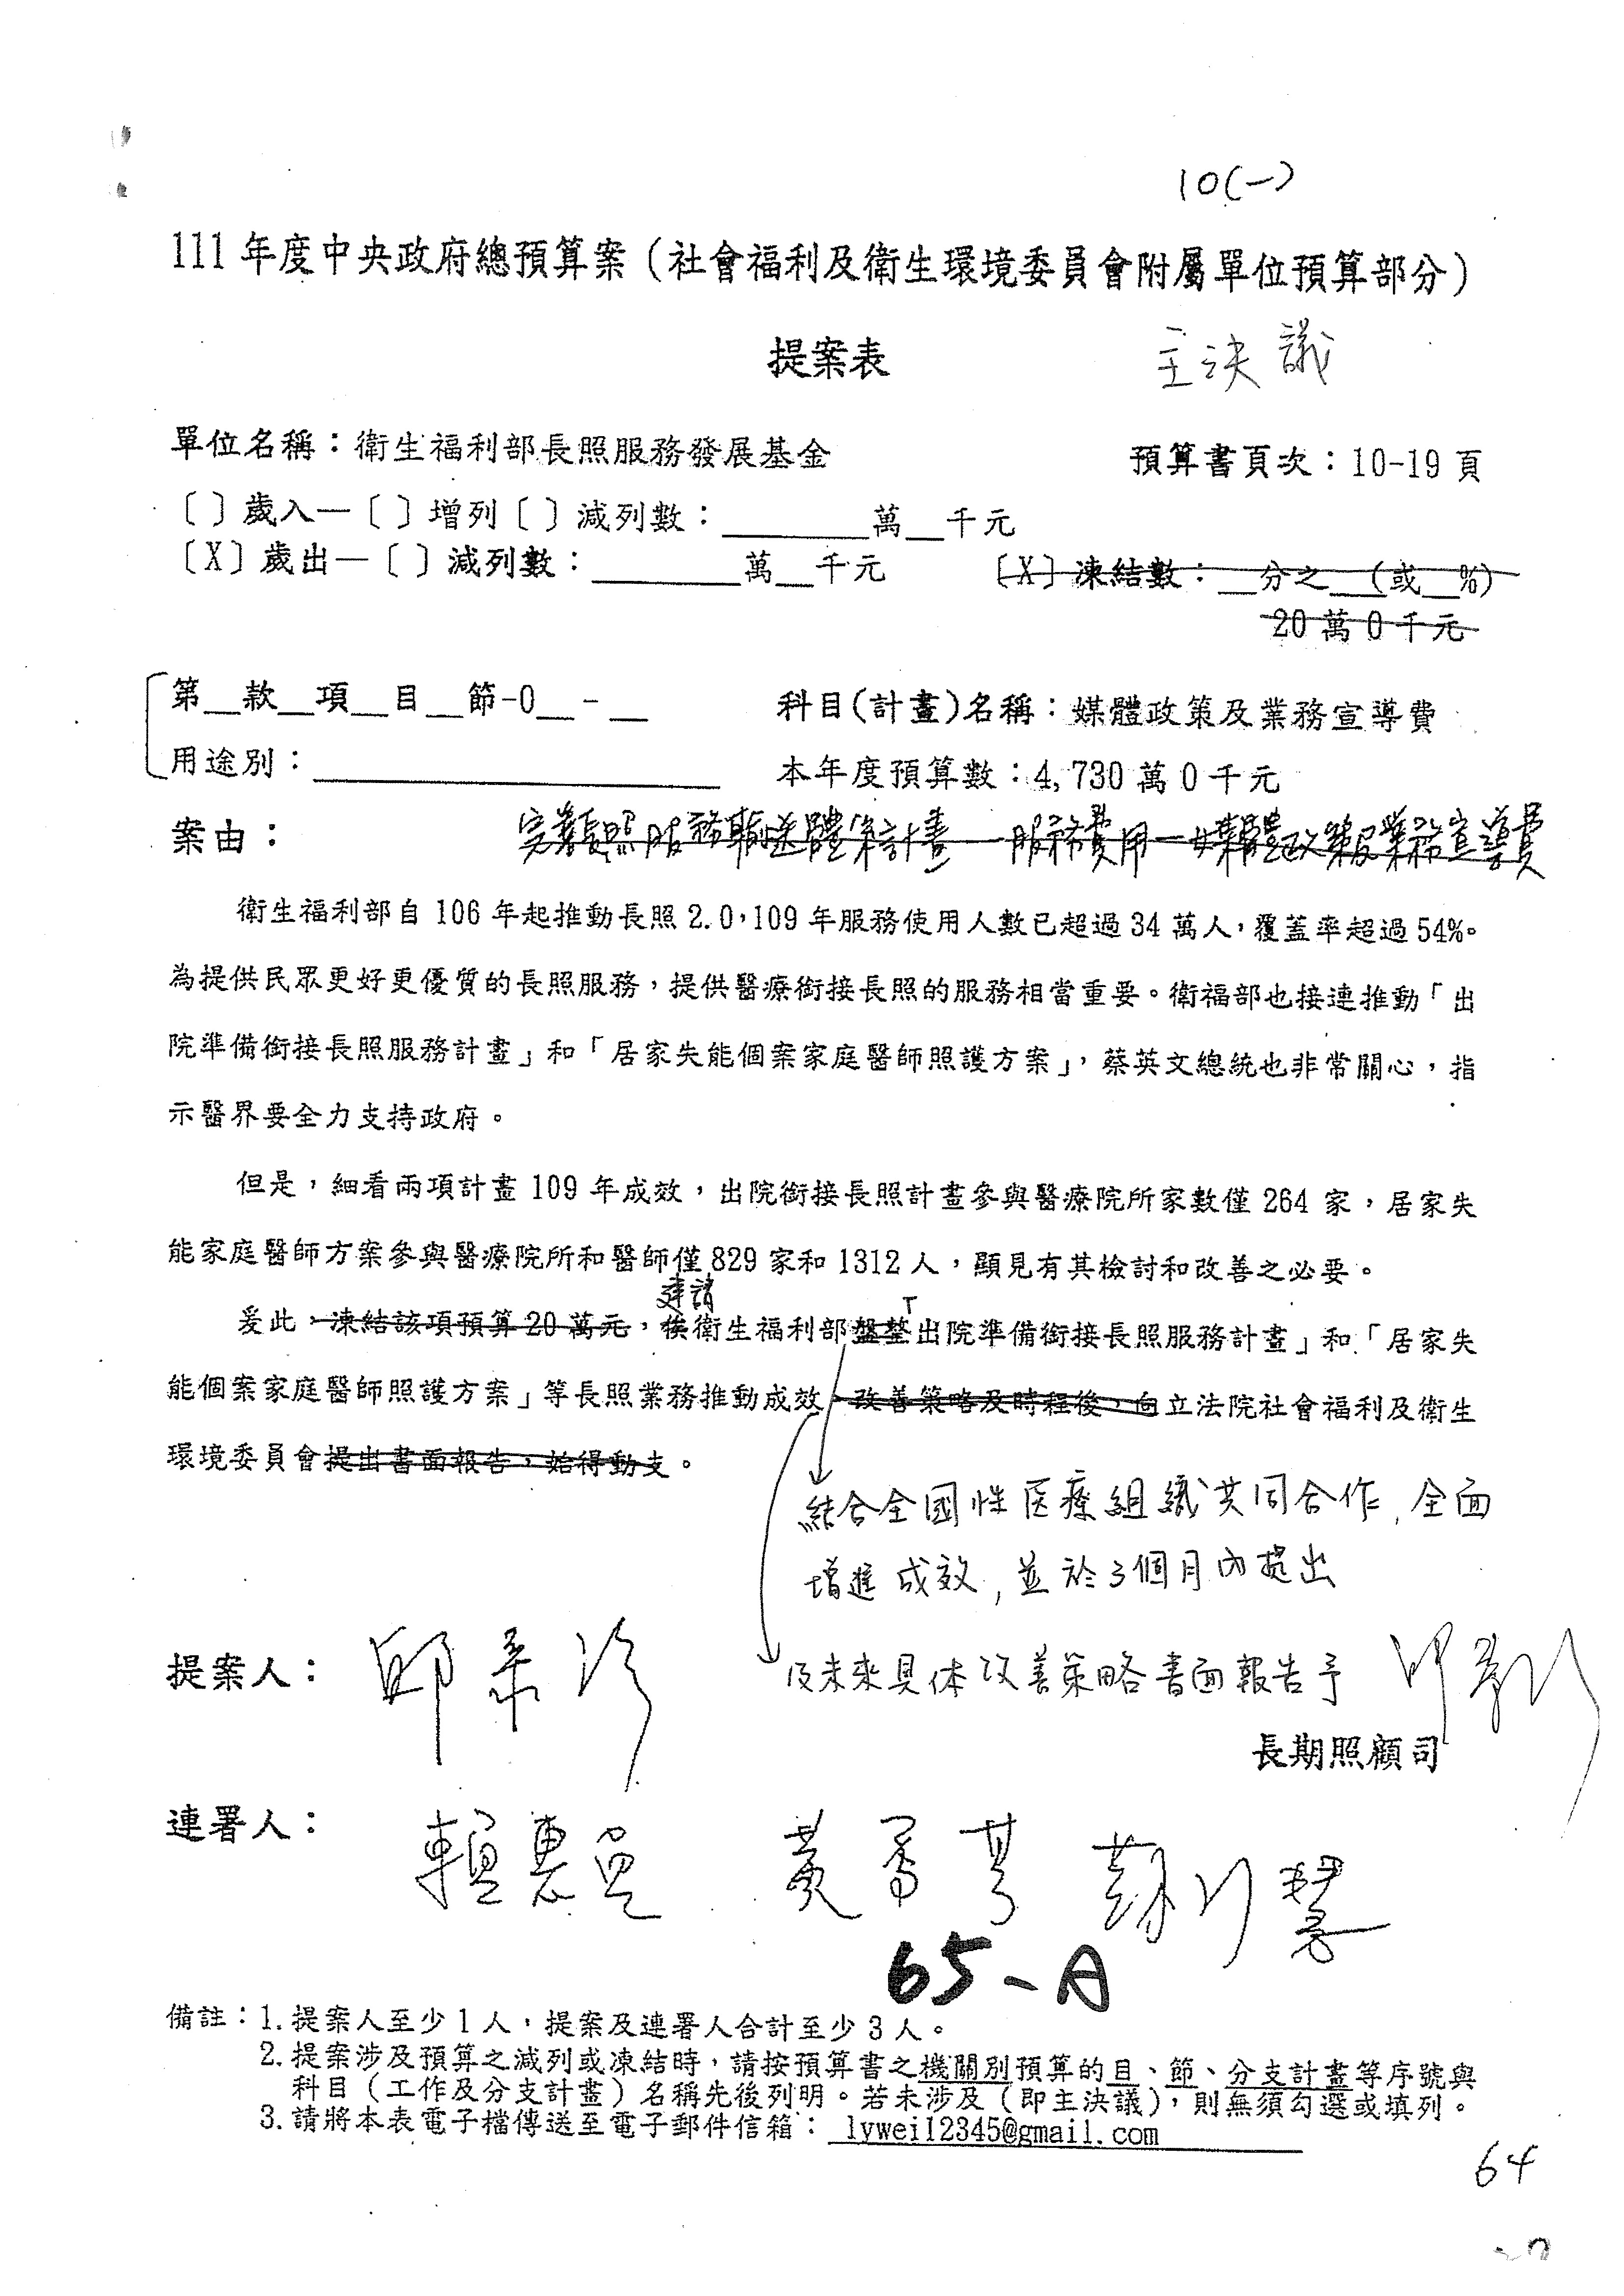 10(一)
111年度中央政府總預算案(社會福利及衛生環境委員會附屬單位預算部分)
提案表
主決議
單位名稱：衛生福利部長照服務發展基金
預算書頁次：10-19頁
〔 〕歲入—〔 〕增列〔 〕減列數：________萬__千元
〔X〕歲出—〔 〕減列數：________萬__千元
〔X〕凍結數：__分之___(或__%)
20萬0千元
第__款__項__目__節-0__-__
科目(計畫)名稱：媒體政策及業務宣導費
用途別：
本年度預算數：4,730萬0千元
案由：
完善長照服務輸送體系計畫—服務費用—媒體政策及業務宣導費
衛生福利部自106年起推動長照2.0，109年服務使用人數已超過34萬人，覆蓋率超過54%。
為提供民眾更好更優質的長照服務，提供醫療銜接長照的服務相當重要。衛福部也接連推動「出
院準備銜接長照服務計畫」和「居家失能個案家庭醫師照護方案」，蔡英文總統也非常關心，指
示醫界要全力支持政府。
但是，細看兩項計畫109年成效，出院銜接長照計畫參與醫療院所家數僅264家，居家失
能家庭醫師方案參與醫療院所和醫師僅829家和1312人，顯見有其檢討和改善之必要。
建請
爰此，凍結該項預算20萬元，俟衛生福利部盤整「出院準備銜接長照服務計畫」和「居家失
能個案家庭醫師照護方案」等長照業務推動成效、改善策略及時程後，向立法院社會福利及衛生
環境委員會提出書面報告，始得動支。
結合全國性医療組織共同合作，全面
增進成效，並於3個月內提出
及未來具体改善策略書面報告予
提案人：邱泰源
長期照顧司
連署人：賴惠員 黃秀芳 蘇巧慧
65-A
備註：1.提案人至少1人，提案及連署人合計至少3人。
2.提案涉及預算之減列或凍結時，請按預算書之機關別預算的目、節、分支計畫等序號與
科目（工作及分支計畫）名稱先後列明。若未涉及（即主決議），則無須勾選或填列。
3.請將本表電子檔傳送至電子郵件信箱：lywei12345@gmail.com
64